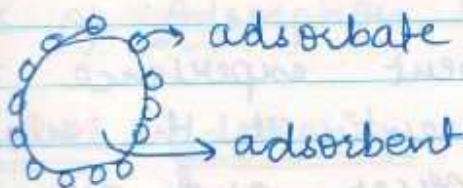 adsorbate
adsorbent